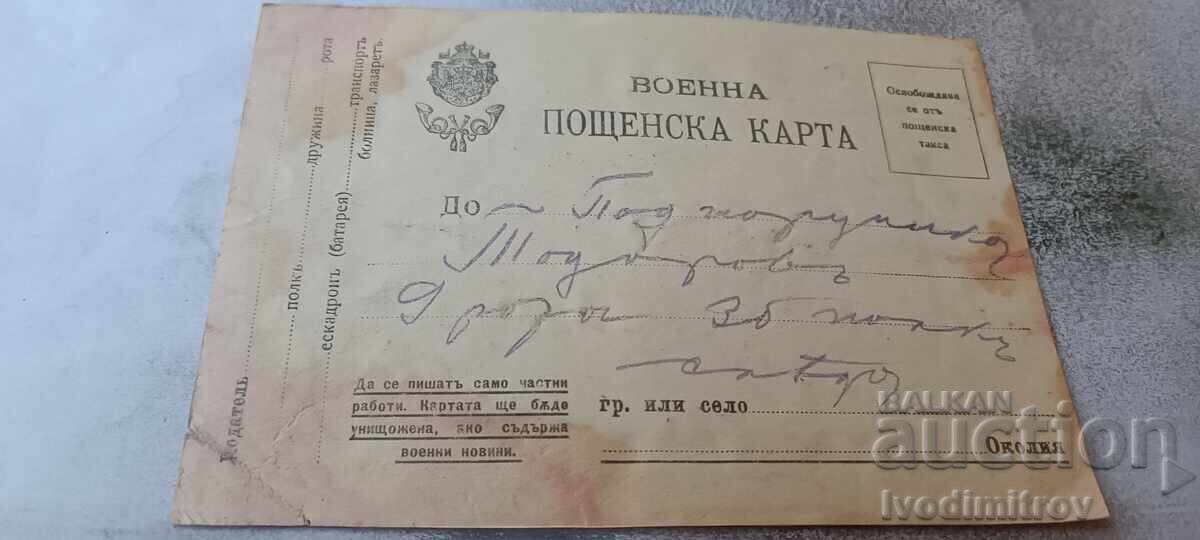 ВОЕННА
ПОЩЕНСКА КАРТА
Освобождава
се отъ
пощенска
такса
До Подпоручика
Тодоровъ
9 рота 36 полкъ
гр. или село
Околия
Да се пишатъ само частни
работи. Картата ще бѫде
унищожена, ако съдържа
военни новини.
Подателъ
полкъ дружина рота
ескадронъ (батарея) транспортъ
болница, лазаретъ.
BALKAN
auction
Ivodimitrov